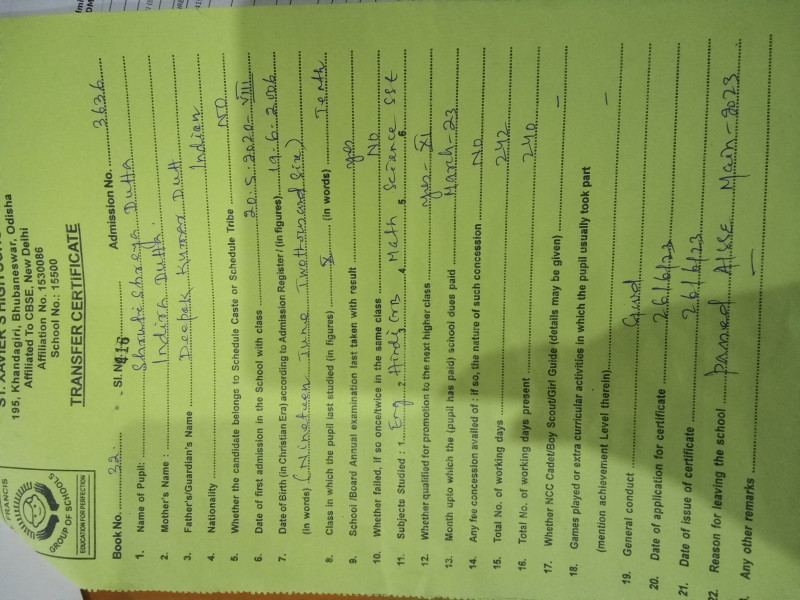 FRANCIS
GROUP OF SCHOOLS
EDUCATION FOR PERFECTION
ST. XAVIER'S HIGH SCHOOL
195, Khandagiri, Bhubaneswar, Odisha
Affiliated To CBSE, New Delhi
Affiliation No. 1530086
School No.: 15500
TRANSFER CERTIFICATE
Book No. 32 Sl. No. 416 Admission No. 3636
1. Name of Pupil: Dutta
2. Mother's Name : Dutta
3. Father's/Guardian's Name Deepak Kumar Dutt
4. Nationality Indian
5. Whether the candidate belongs to Schedule Caste or Schedule Tribe NO
6. Date of first admission in the School with class 20.5.2020 - VIII
7. Date of Birth (in Christian Era) according to Admission Register/(in figures) 19.6.2006
(in words) (Nineteen June Twothousand Six)
8. Class in which the pupil last studied (in figures) X (in words) Tenth
9. School /Board Annual examination last taken with result yes
10. Whether failed, if so once/twice in the same class NO
11. Subjects Studied : 1. Eng 2. Hindi 3. 4. Math 5. Science 6. SSt
12. Whether qualified for promotion to the next higher class yes - XI
13. Month upto which the (pupil has paid) school dues paid March-23
14. Any fee concession availed of : if so, the nature of such concession NO
15. Total No. of working days 242
16. Total No. of working days present 240
17. Whether NCC Cadet/Boy Scout/Girl Guide (details may be given) –
18. Games played or extra curricular activities in which the pupil usually took part
(mention achievement Level therein) –
19. General conduct Good
20. Date of application for certificate 26/6/23
21. Date of issue of certificate 26/6/23
22. Reason for leaving the school passed AISSE Main-2023
Any other remarks –